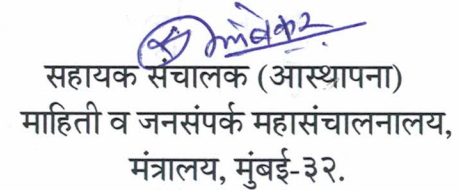 सहायक संचालक (आस्थापना)
माहिती व जनसंपर्क महासंचालनालय,
मंत्रालय, मुंबई-३२.